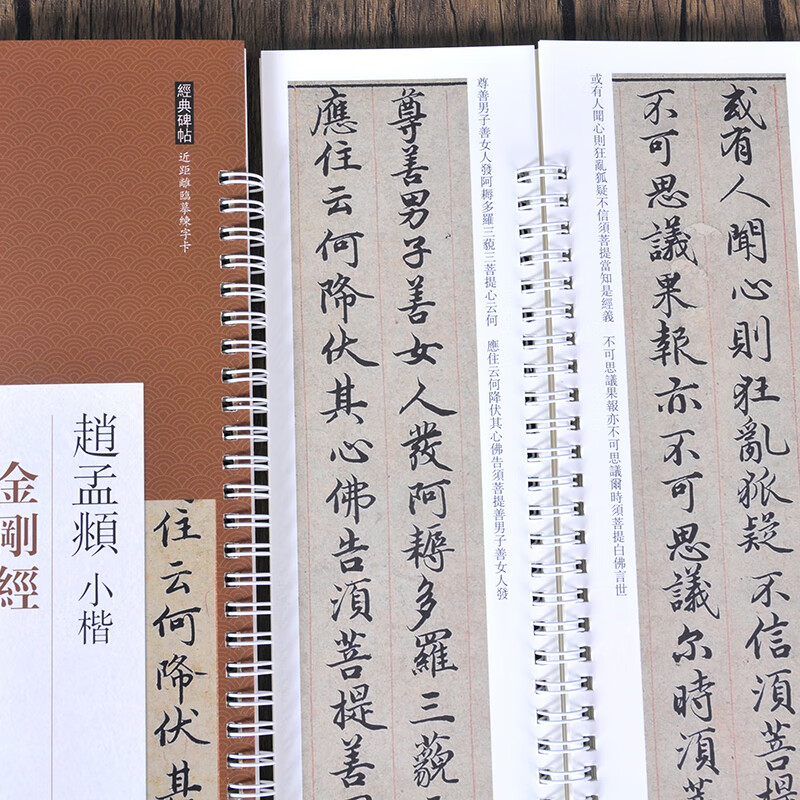 經典碑帖
近距離臨摹練字卡
趙孟頫 小楷
金剛經
住云何降伏其
尊善男子善女人發阿耨多羅三藐三菩提心云何 應住云何降伏其心佛告須菩提善男子善女人發
尊善男子善女人發阿耨多羅三藐
應住云何降伏其心佛告須菩提善
或有人聞心則狂亂狐疑不信須菩提
不可思議果報亦不可思議尔時須菩
或有人聞心則狂亂狐疑不信須菩提當知是經義 不可思議果報亦不可思議爾時須菩提白佛言世